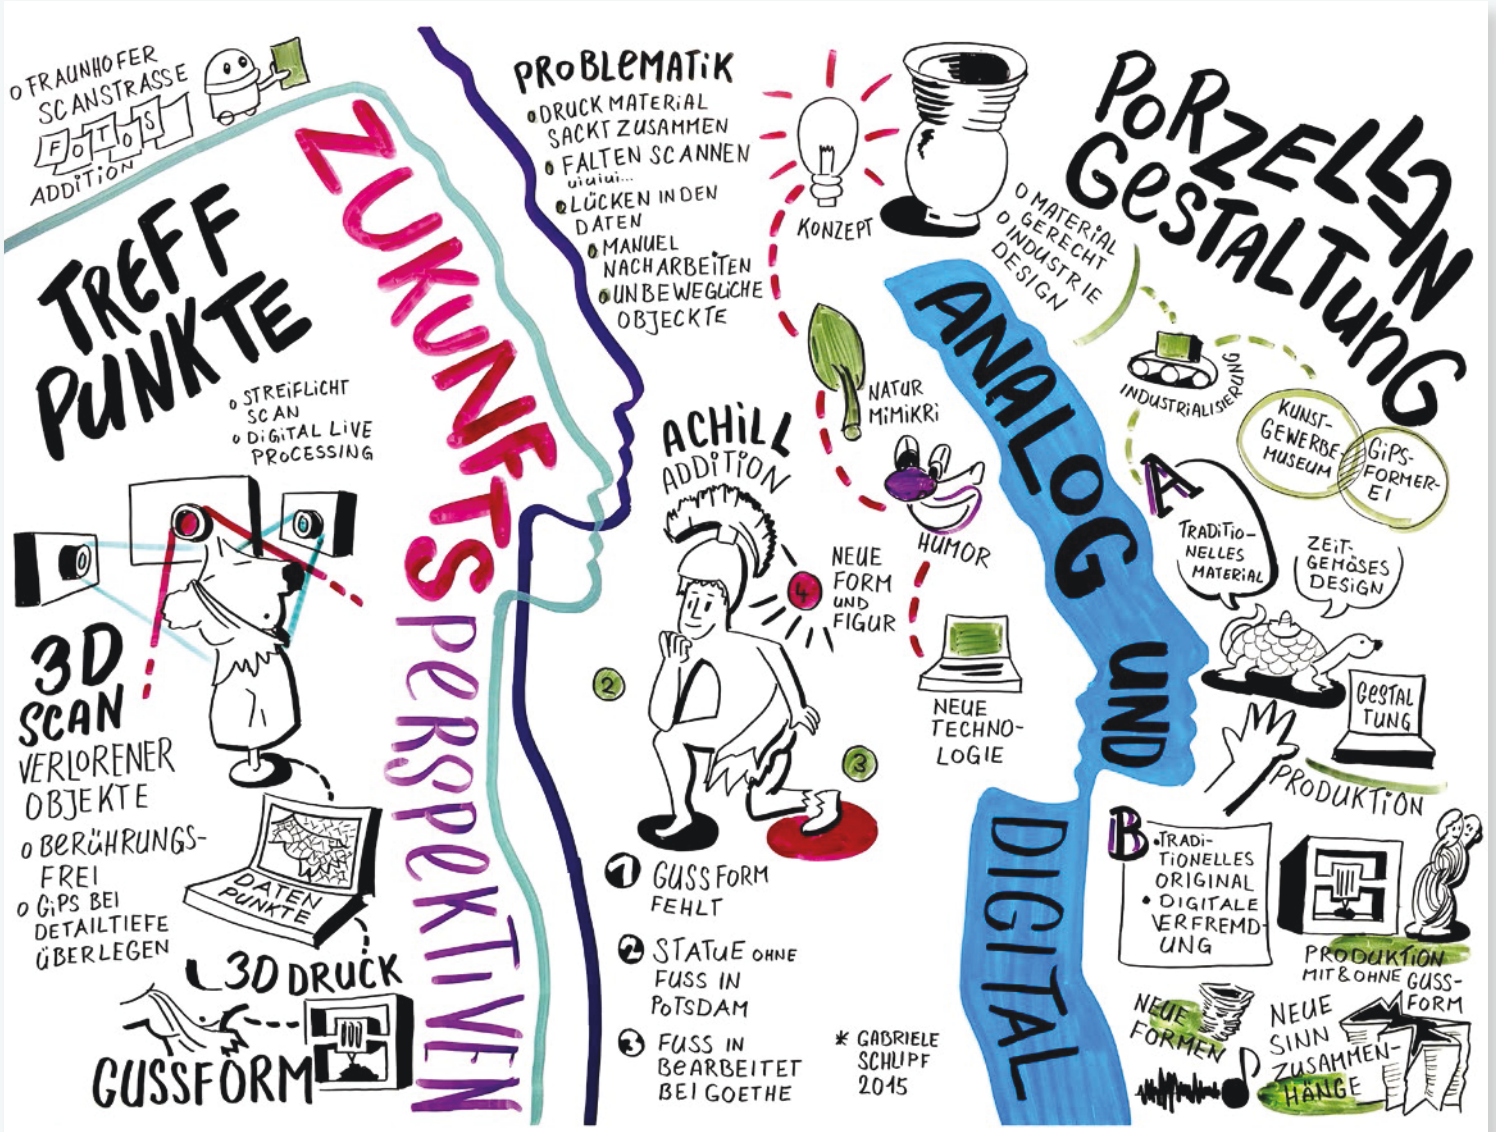 O FRAUNHOFER
SCANSTRASSE
FOTOS
ADDITION
TREFF
PUNKTE
O STREIFLICHT
SCAN
O DIGITAL LIVE
PROCESSING
3D
SCAN
VERLORENER
OBJEKTE
O BERÜHRUNGS-
FREI
O GIPS BEI
DETAILTIEFE
ÜBERLEGEN
DATEN
PUNKTE
3D DRUCK
GUSSFORM
ZUKUNFTS
PERSPEKTIVEN
PROBLEMATIK
O DRUCK MATERIAL
SACKT ZUSAMMEN
O FALTEN SCANNEN
uiuiui...
O LÜCKEN IN DEN
DATEN
O MANUEL
NACHARBEITEN
O UNBEWEGLICHE
OBJECKTE
ACHILL
ADDITION
4
NEUE
FORM
UND
FIGUR
2
3
1 GUSSFORM
FEHLT
2 STATUE OHNE
FUSS IN
POTSDAM
3 FUSS IN
BEARBEITET
BEI GOETHE
KONZEPT
NATUR
MIMIKRI
HUMOR
NEUE
TECHNO-
LOGIE
* GABRIELE
SCHLIPF
2015
ANALOG UND
DIGITAL
PORZELLAN
GESTALTUNG
O MATERIAL
O GERECHT
O INDUSTRIE
DESIGN
INDUSTRIALISIERUNG
KUNST-
GEWERBE-
MUSEUM
GIPS-
FORMER-
EI
A
TRADITIO-
NELLES
MATERIAL
ZEIT-
GEMÖSES
DESIGN
GESTAL
TUNG
PRODUKTION
B
• TRADI-
TIONELLES
ORIGINAL
• DIGITALE
VERFREMD-
UNG
PRODUKTION
MIT & OHNE GUSS-
FORM
NEUE
FORMEN
NEUE
SINN
ZUSAMMEN-
HÄNGE